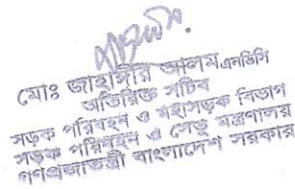 মোঃ জাহাঙ্গীর আলম এনডিসি
অতিরিক্ত সচিব
সড়ক পরিবহন ও মহাসড়ক বিভাগ
সড়ক পরিবহন ও সেতু মন্ত্রণালয়
গণপ্রজাতন্ত্রী বাংলাদেশ সরকার